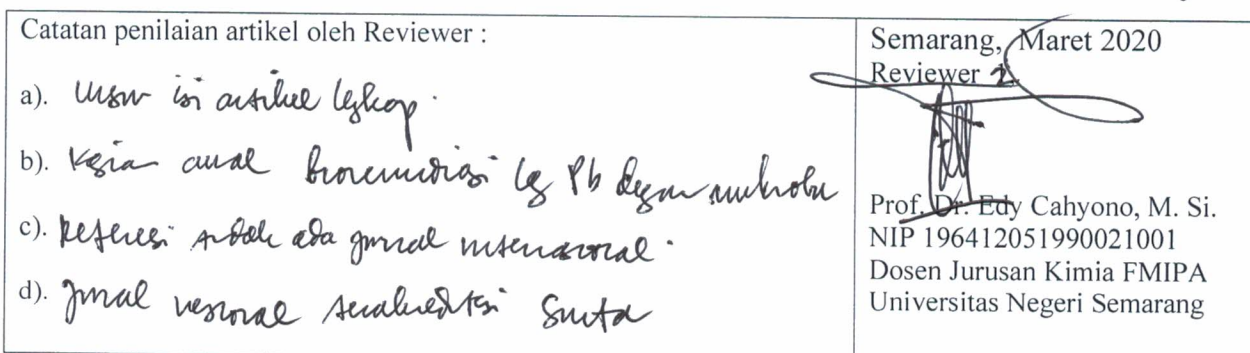 Catatan penilaian artikel oleh Reviewer :
a). Unsur isi artikel lengkap.
b). Kajian awal bioremediasi lg Pb dengan mikroba
c). Referensi sudah ada jurnal internasional.
d). Jurnal nasional terakreditasi Sinta
Semarang, Maret 2020
Reviewer 2
Prof. Dr. Edy Cahyono, M. Si.
NIP 196412051990021001
Dosen Jurusan Kimia FMIPA
Universitas Negeri Semarang